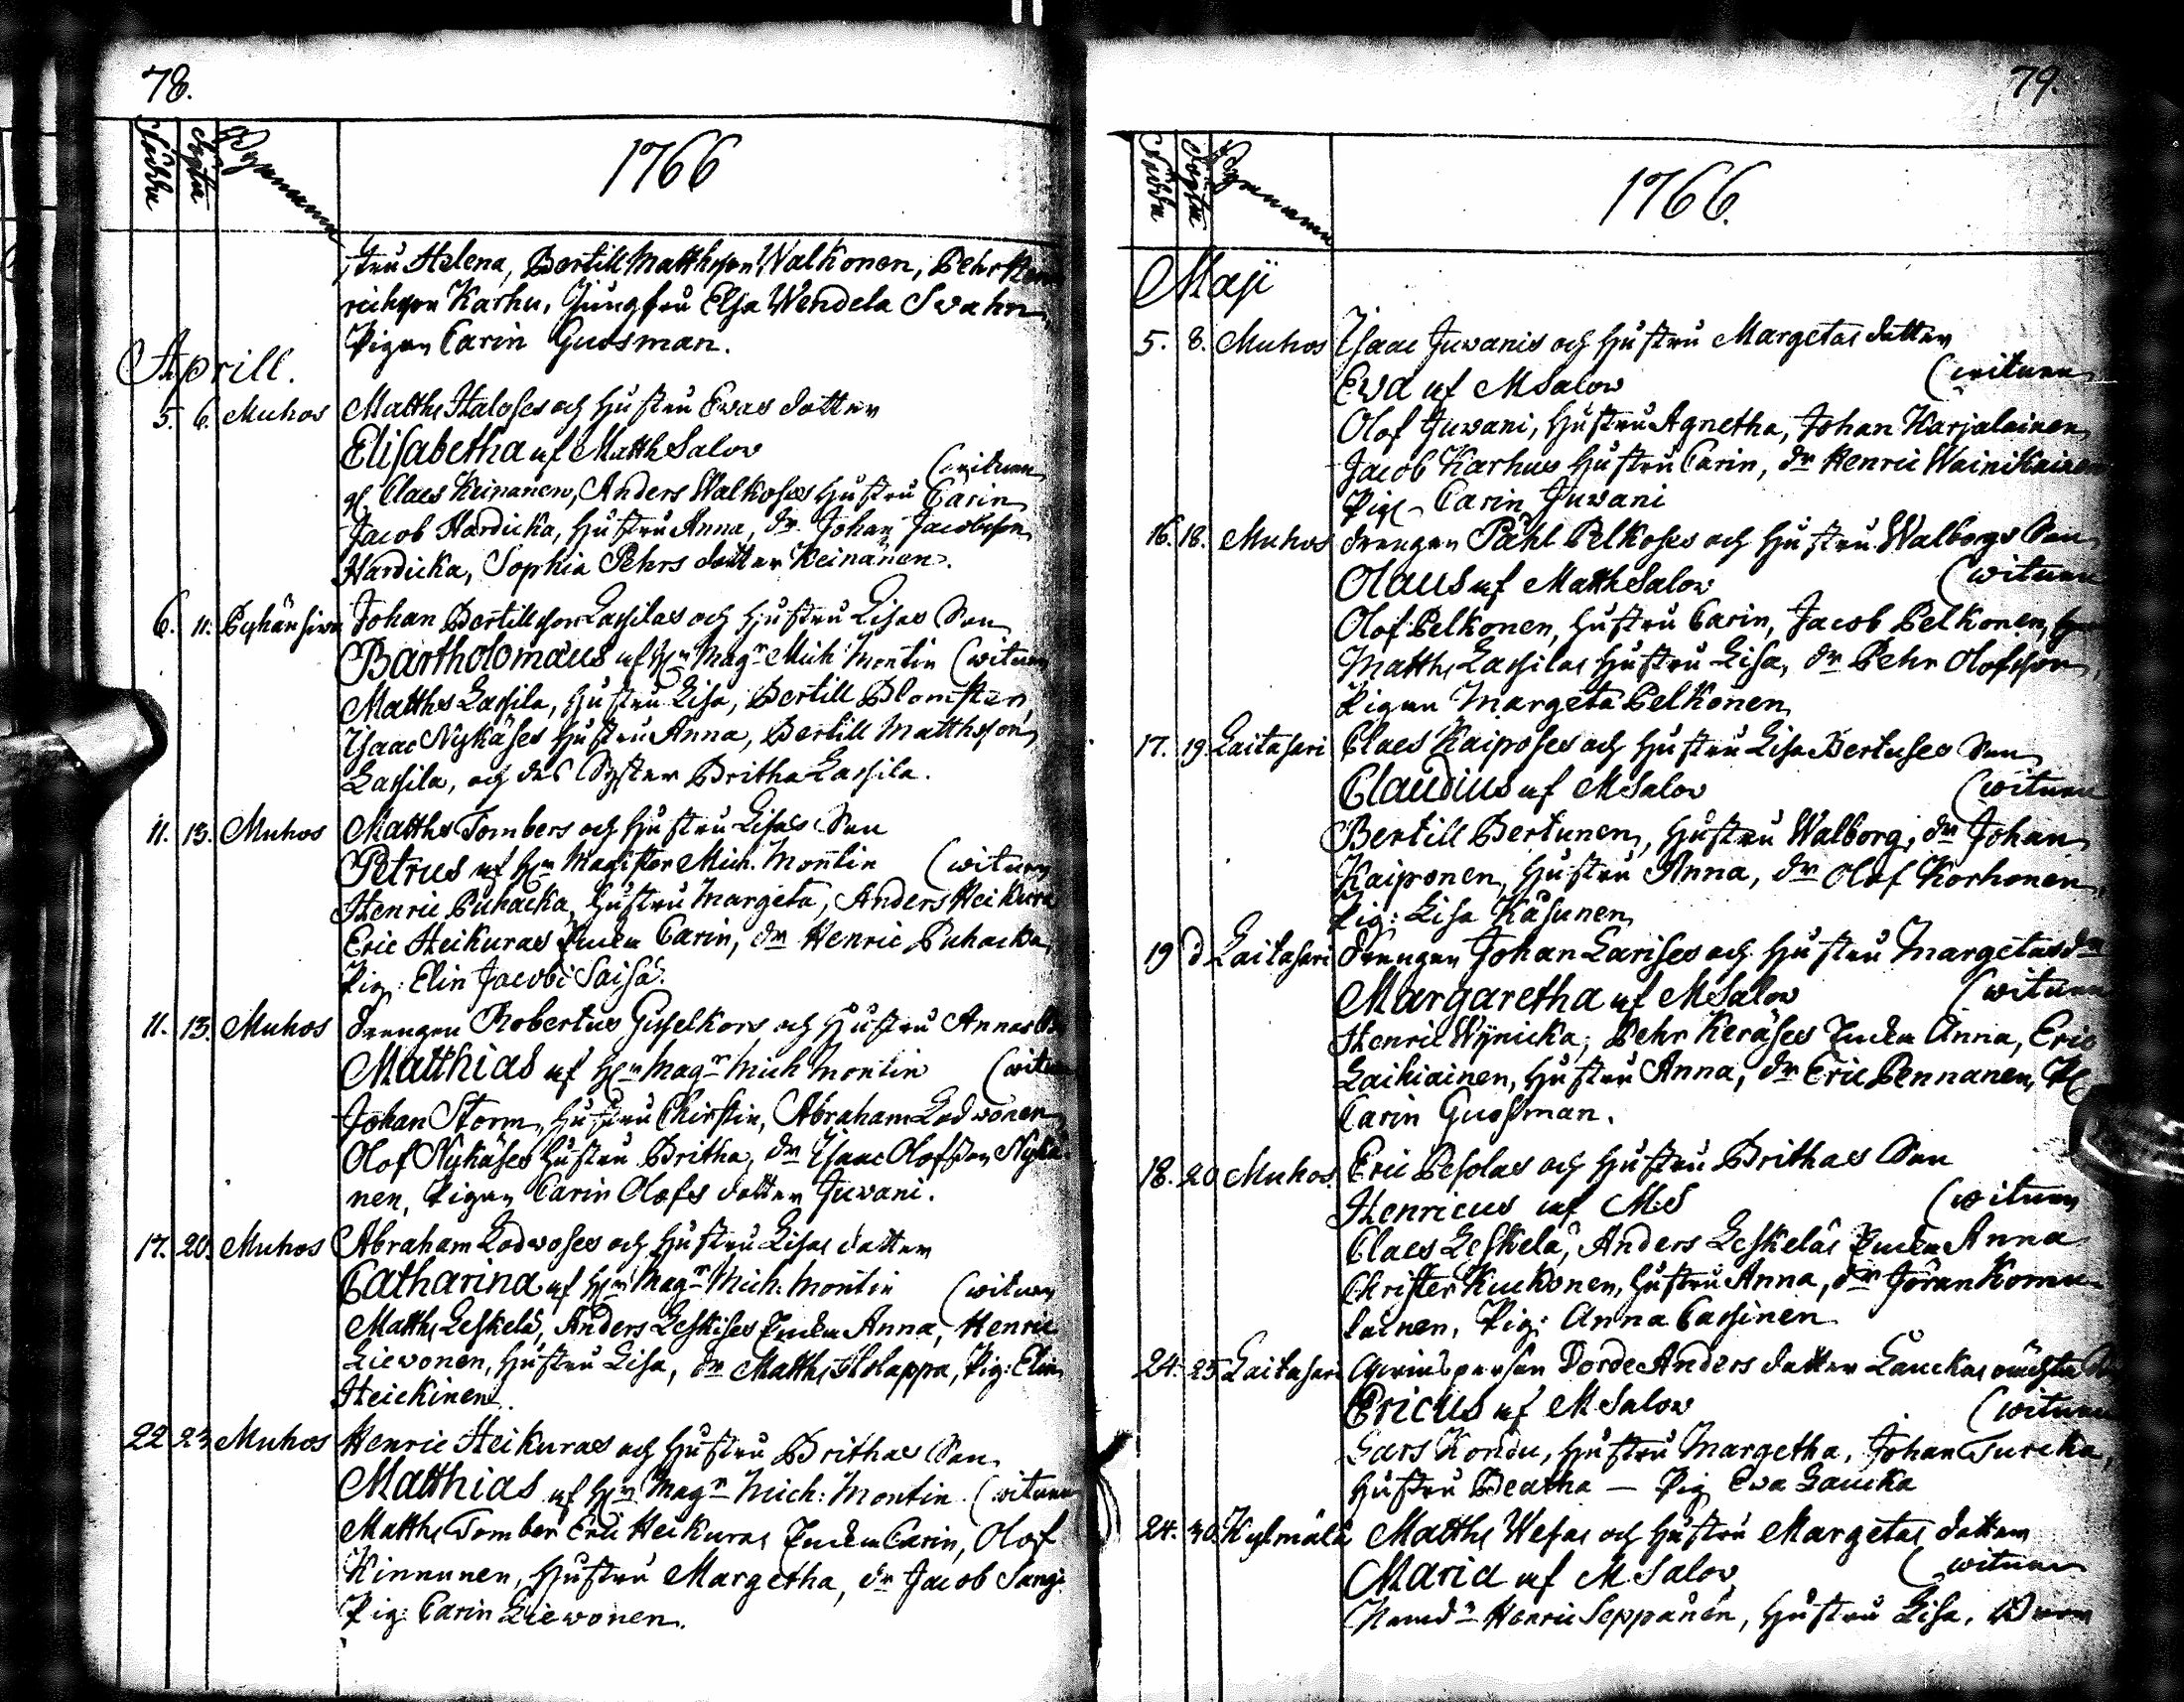 78.
Födde
Döpte
Bynamn
1766
stru Helena, Bertill Matthsson Walkonen, Pehr Hen
richsson Karhu, Jungfru Elsa Wendela Swahn,
Pigan Carin Guosman.
Aprill.
5. 6. Muhos Matths Haloses och Hustru Ewas dotter
Elisabetha af Matth Salov (witnen
Claes Keinänen, Anders Walkoses Hustru Carin
Jacob Hardicka, Hustru Anna, dr Johan Jacobsson
Hardicka, Sophia Pehrs dotter Keinänen.
6. 11. Pyhänsiwu Johan Bertillsson Lassilas och Hustru Lisas Son
Bartholomäus af Hn Magr Mich Montin (witnen
Matths Lassila, Hustru Lisa, Bertill Blomster,
Isaac Nykäses Hustru Anna, Bertill Matthsson
Lassila, och des Syster Britha Lassila.
11. 13. Muhos Matths Tombers och Hustru Lisas Son
Petrus af Hn Magister Mich. Montin (witnen
Henric Puhacka, Hustru Margeta, Anders Heikura
Eric Heikuras Enkia Carin, dr Henric Puhacka,
Pig: Elin Jacobi Saisa.
11. 13. Muhos drengen Robertus Gisselkors och Hustru Annas
Matthias af Hn Magr Mich Montin (witnen
Johan Storm, Hustru Chirstin, Abraham Lodwonen
Olof Nykäses Hustru Britha, dr Isaac Olofsson Nykä-
nen, Pigan Carin Olofs dotter Juwani.
17. 20. Muhos Abraham Lodwoses och Hustru Lisas dotter
Catharina af Hn Magr Mich. Montin (witnen
Matths Leskelä, Anders Leskises Enkia Anna, Henric
Liewonen, Hustru Lisa, dr Matths Holappa, Pig: Elin
Heickinen.
22 23 Muhos Henric Heikuras och Hustru Brithas Son
Matthias af Hn Magr Mich: Montin. (witnen
Matths Tomber Eric Heikuras Enkia Carin, Olof
Kinnunen, Hustru Margetha, dr Jacob Sangi
Pig: Carin Liewonen.
79.
Födde
Döpte
Bynamn
1766.
Maji
5. 8. Muhos Isaac Juwanis och Hustru Margetas dotter
Ewa af M Salow (witnen
Olof Juwani, Hustru Agnetha, Johan Karjalainen
Jacob Karhus Hustru Carin, dr Henric Wainikainen
Pig Carin Juwani
16. 18. Muhos drengen Påhl Pelkoses och Hustru Walborgs Son
Olaus af Matth Salow (witnen
Olof Pelkonen, Hustru Carin, Jacob Pelkonen,
Matths Lassilas Hustru Lisa, dr Pehr Olofsson,
Pigan Margeta Pelkonen
17. 19. Laitasari Claes Kaiposes och Hustru Lisa Bertuses Son
Claudius af M Salow (witnen
Bertill Bertunen, Hustru Walborg, dr Johan
Kaiponen, Hustru Anna, dr Olof Korhonen,
Pig: Lisa Käsunen
19 d Laitasari drengen Johan Larises och Hustru Margetas dr
Margaretha af M Salow (witnen
Henric Wynicka, Pehr Keräses Enkia Anna, Eric
Laikiainen, Hustru Anna, dr Eric Pennanen, P
Carin Guosman.
18. 20 Muhos. Eric Pesolas och Hustru Brithas Son
Henricus af M:S (witnen
Claes Leskelä, Anders Leskeläs Enkia Anna
Christer Kuckonen, Hustru Anna, dr Jöran Komu-
lainen, Pig: Anna Cassinen
24. 25 Laitasari qwinspersan Dorde Anders dotter Lauckas oächta
Ericus af M Salow (witnen
Lars Kordu, Hustru Margetha, Johan Turcka,
Hustru Beatha — Pig Ewa Laucka
24. 30. Kylmälä Matths Wesas och Hustru Margetas dotter
Maria af M Salov (witnen
Nämdn Henric Seppänen, Hustru Lisa,